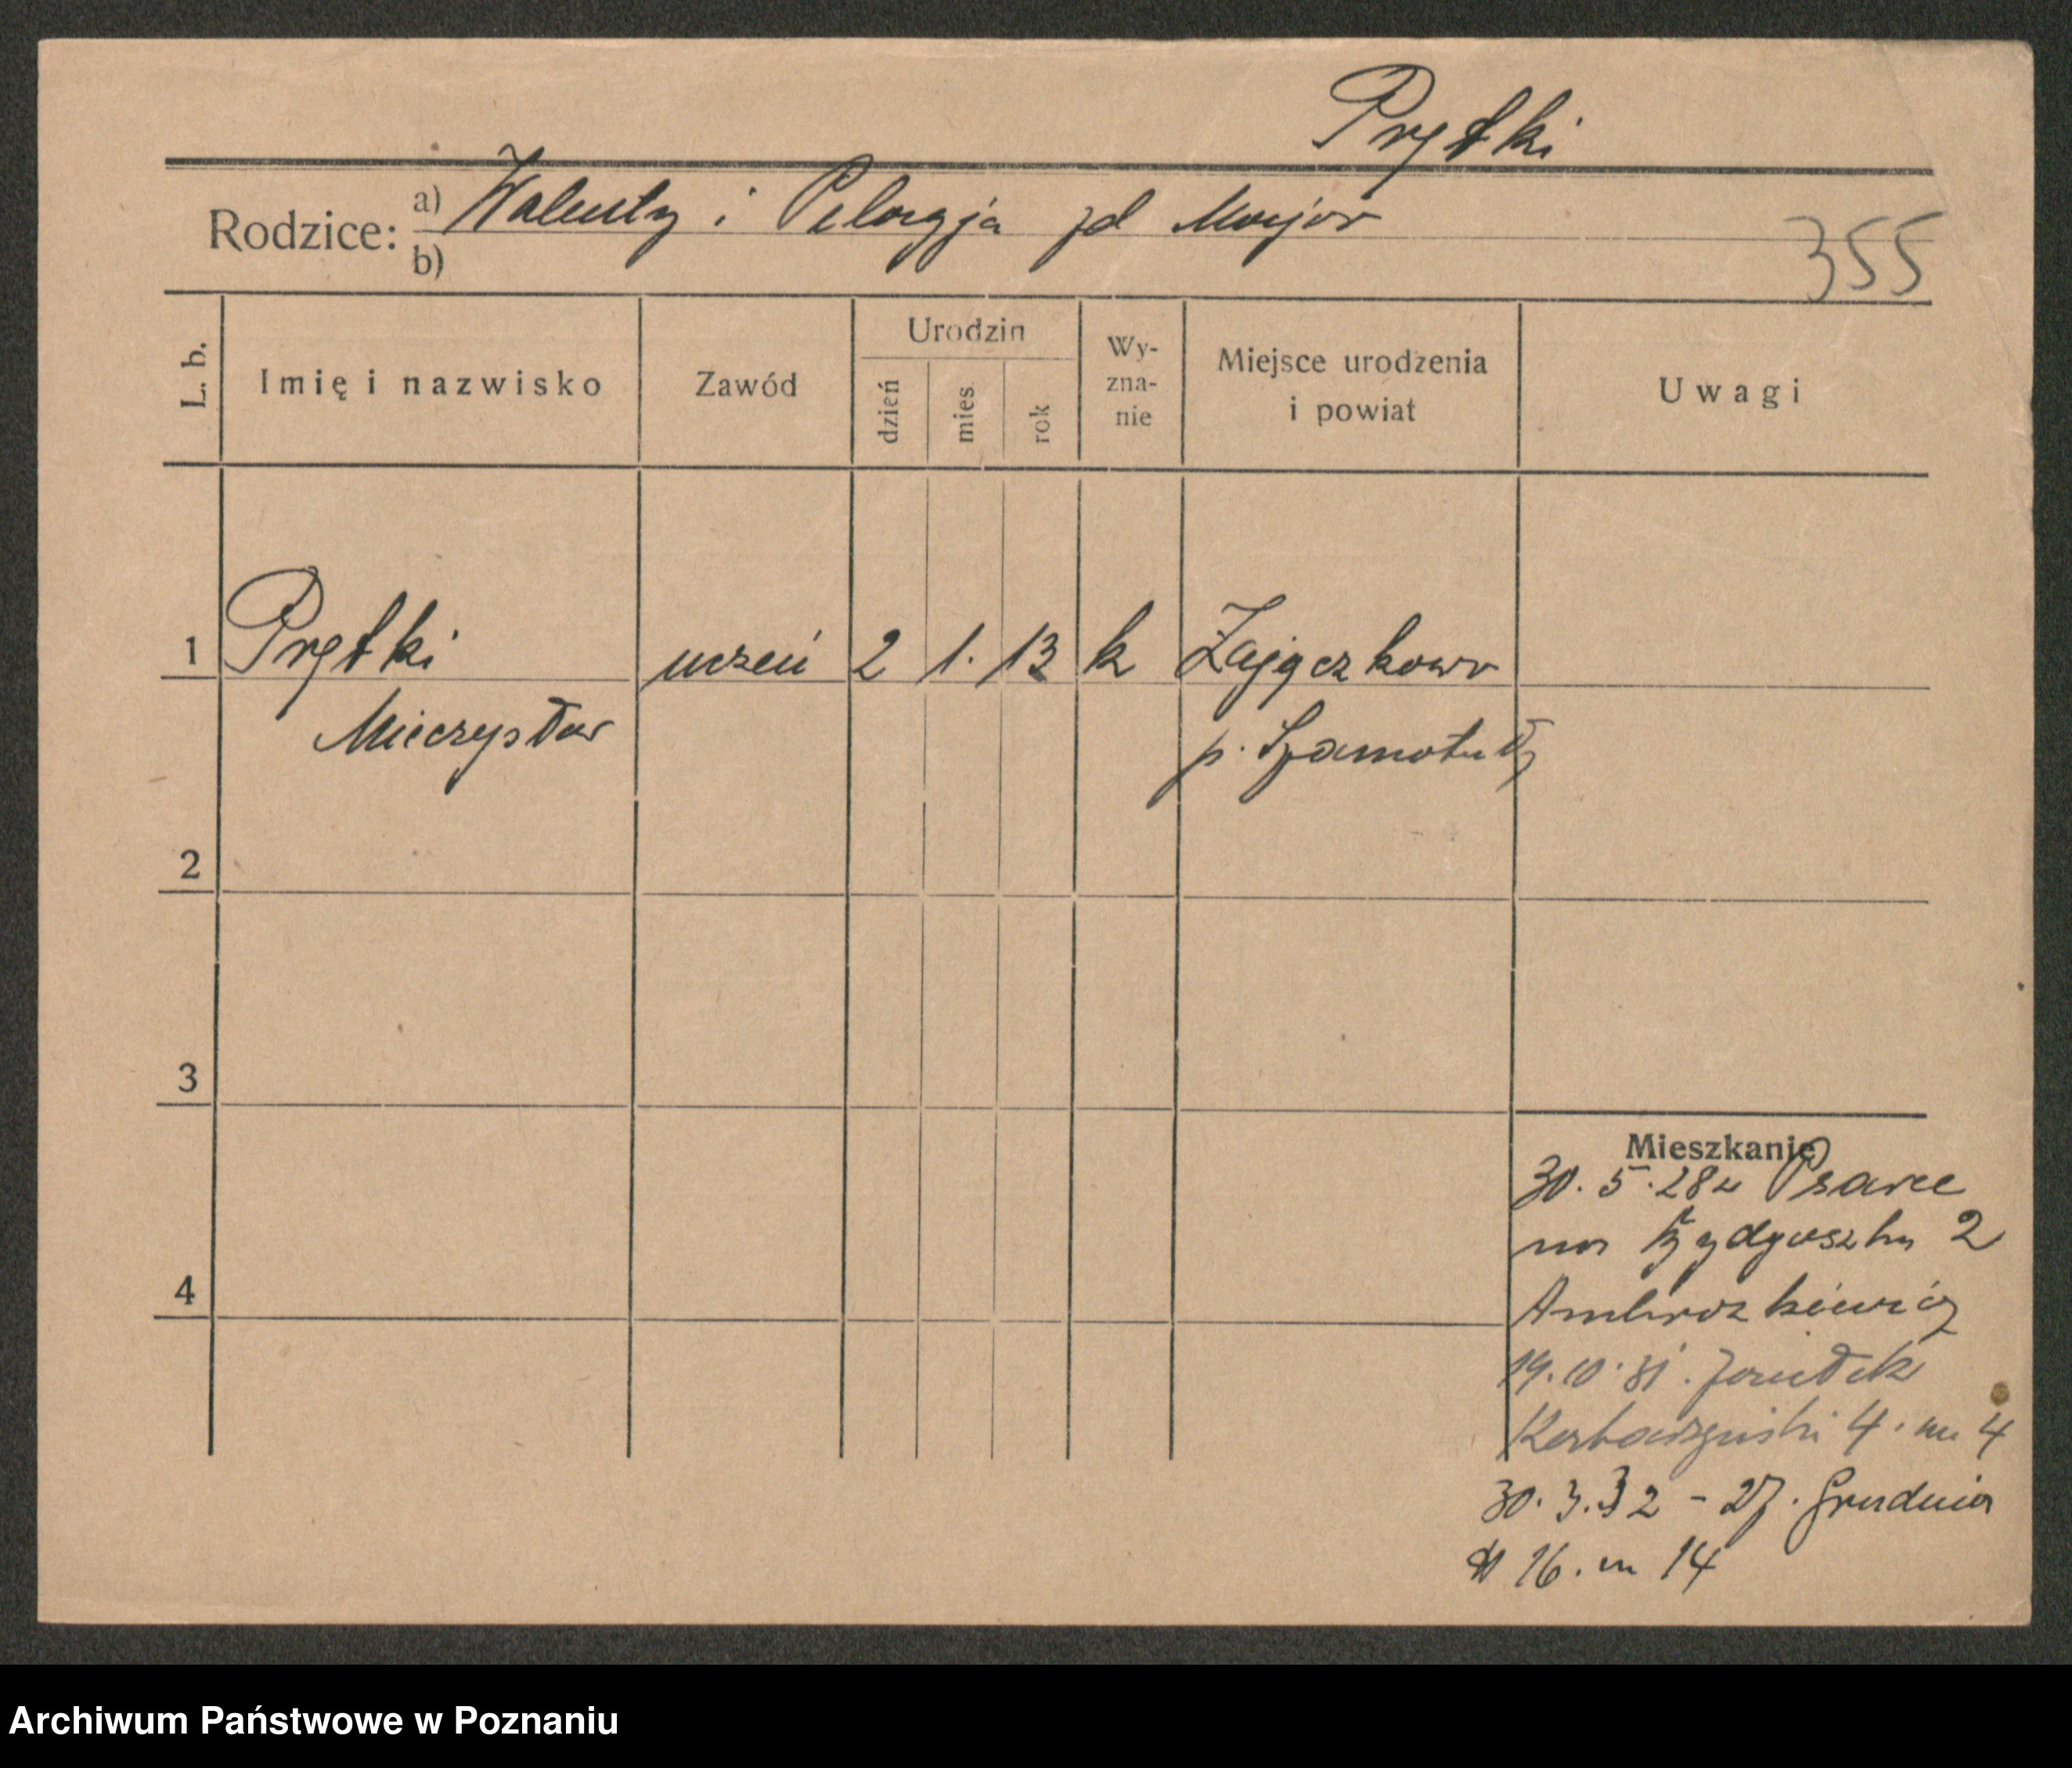 Prętki
Rodzice: a) Walenty i Pelagja zd Major
b)
355
L. b. Imię i nazwisko Zawód Urodzin dzień mies. rok Wy-zna-nie Miejsce urodzenia i powiat Uwagi
1 Prętki uczeń 2 1. 13 k Zajączkowo
Mieczysław p. Szamotuły
2
3
Mieszkanie
30. 5. 28 Psarce
na Bydgoszka 2
4
Ambrozkiewicz
19. 10. 31.
4. m 4
30. 3. 32 - 27. Grudnia
16. m 14
Archiwum Państwowe w Poznaniu